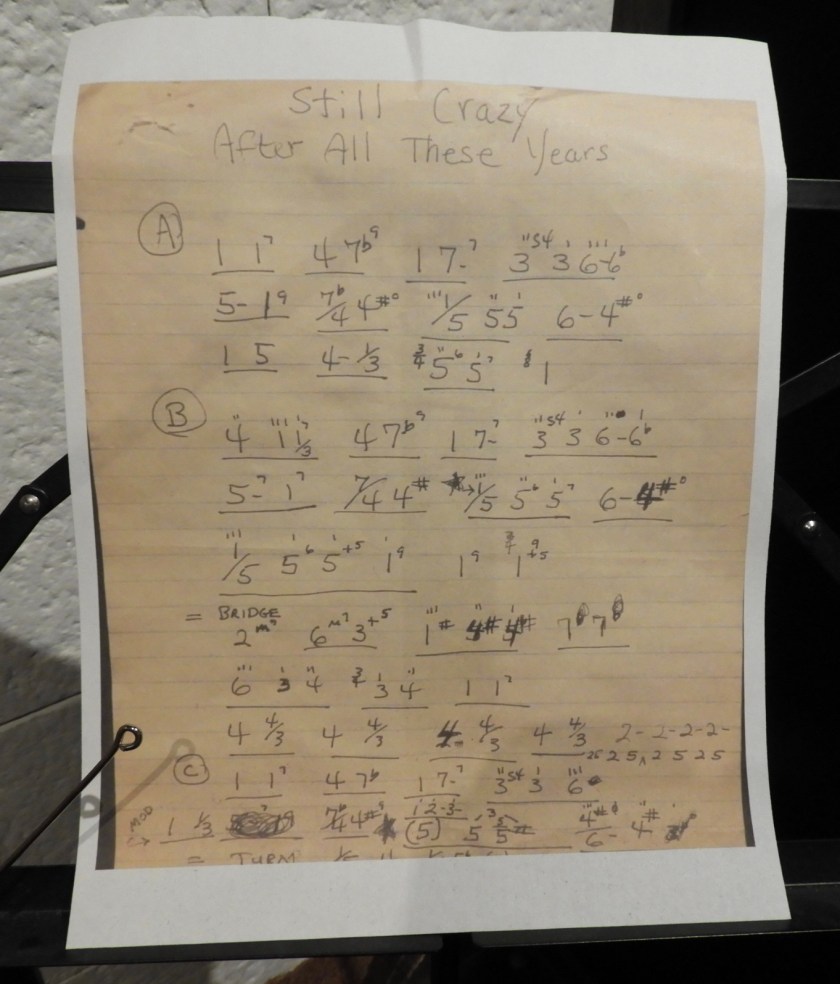 Still Crazy
After All These Years
A
1 1⁷ 4 7b⁹ 1 7-⁷ 3ˢ⁴ 3 6-6b
5- 1⁹ 7b/4 4#° 1/5 5 5 6-4#°
1 5 4- 1/3 3/4 5⁶ 5⁷ 1
B
4 1 1⁷/3 4 7b⁹ 1 7-⁷ 3ˢ⁴ 3 6-6b
5-⁷ 1⁷ 7/4 4# 1/5 5⁶ 5⁷ 6-4#°
1/5 5⁶ 5⁺⁵ 1⁹ 1⁹ 3/4 1⁹₊₅
= BRIDGE
2ᵐ⁷ 6ᵐ⁷ 3⁺⁵ 1# 4# 4# 7 7
6 3 4 3/4 3 4 1 1⁷
4 4/3 4 4/3 4 4/3 4 4/3 2- 2- 2- 2-
25 2 5 2 5 2 5
C
1 1⁷ 4 7b 1 7-⁷ 3ˢ⁴ 3 6
MOD
1 1/3 7b/4 4#° 1 2- 3- (5) 5 4#/6- 4#
= TURN